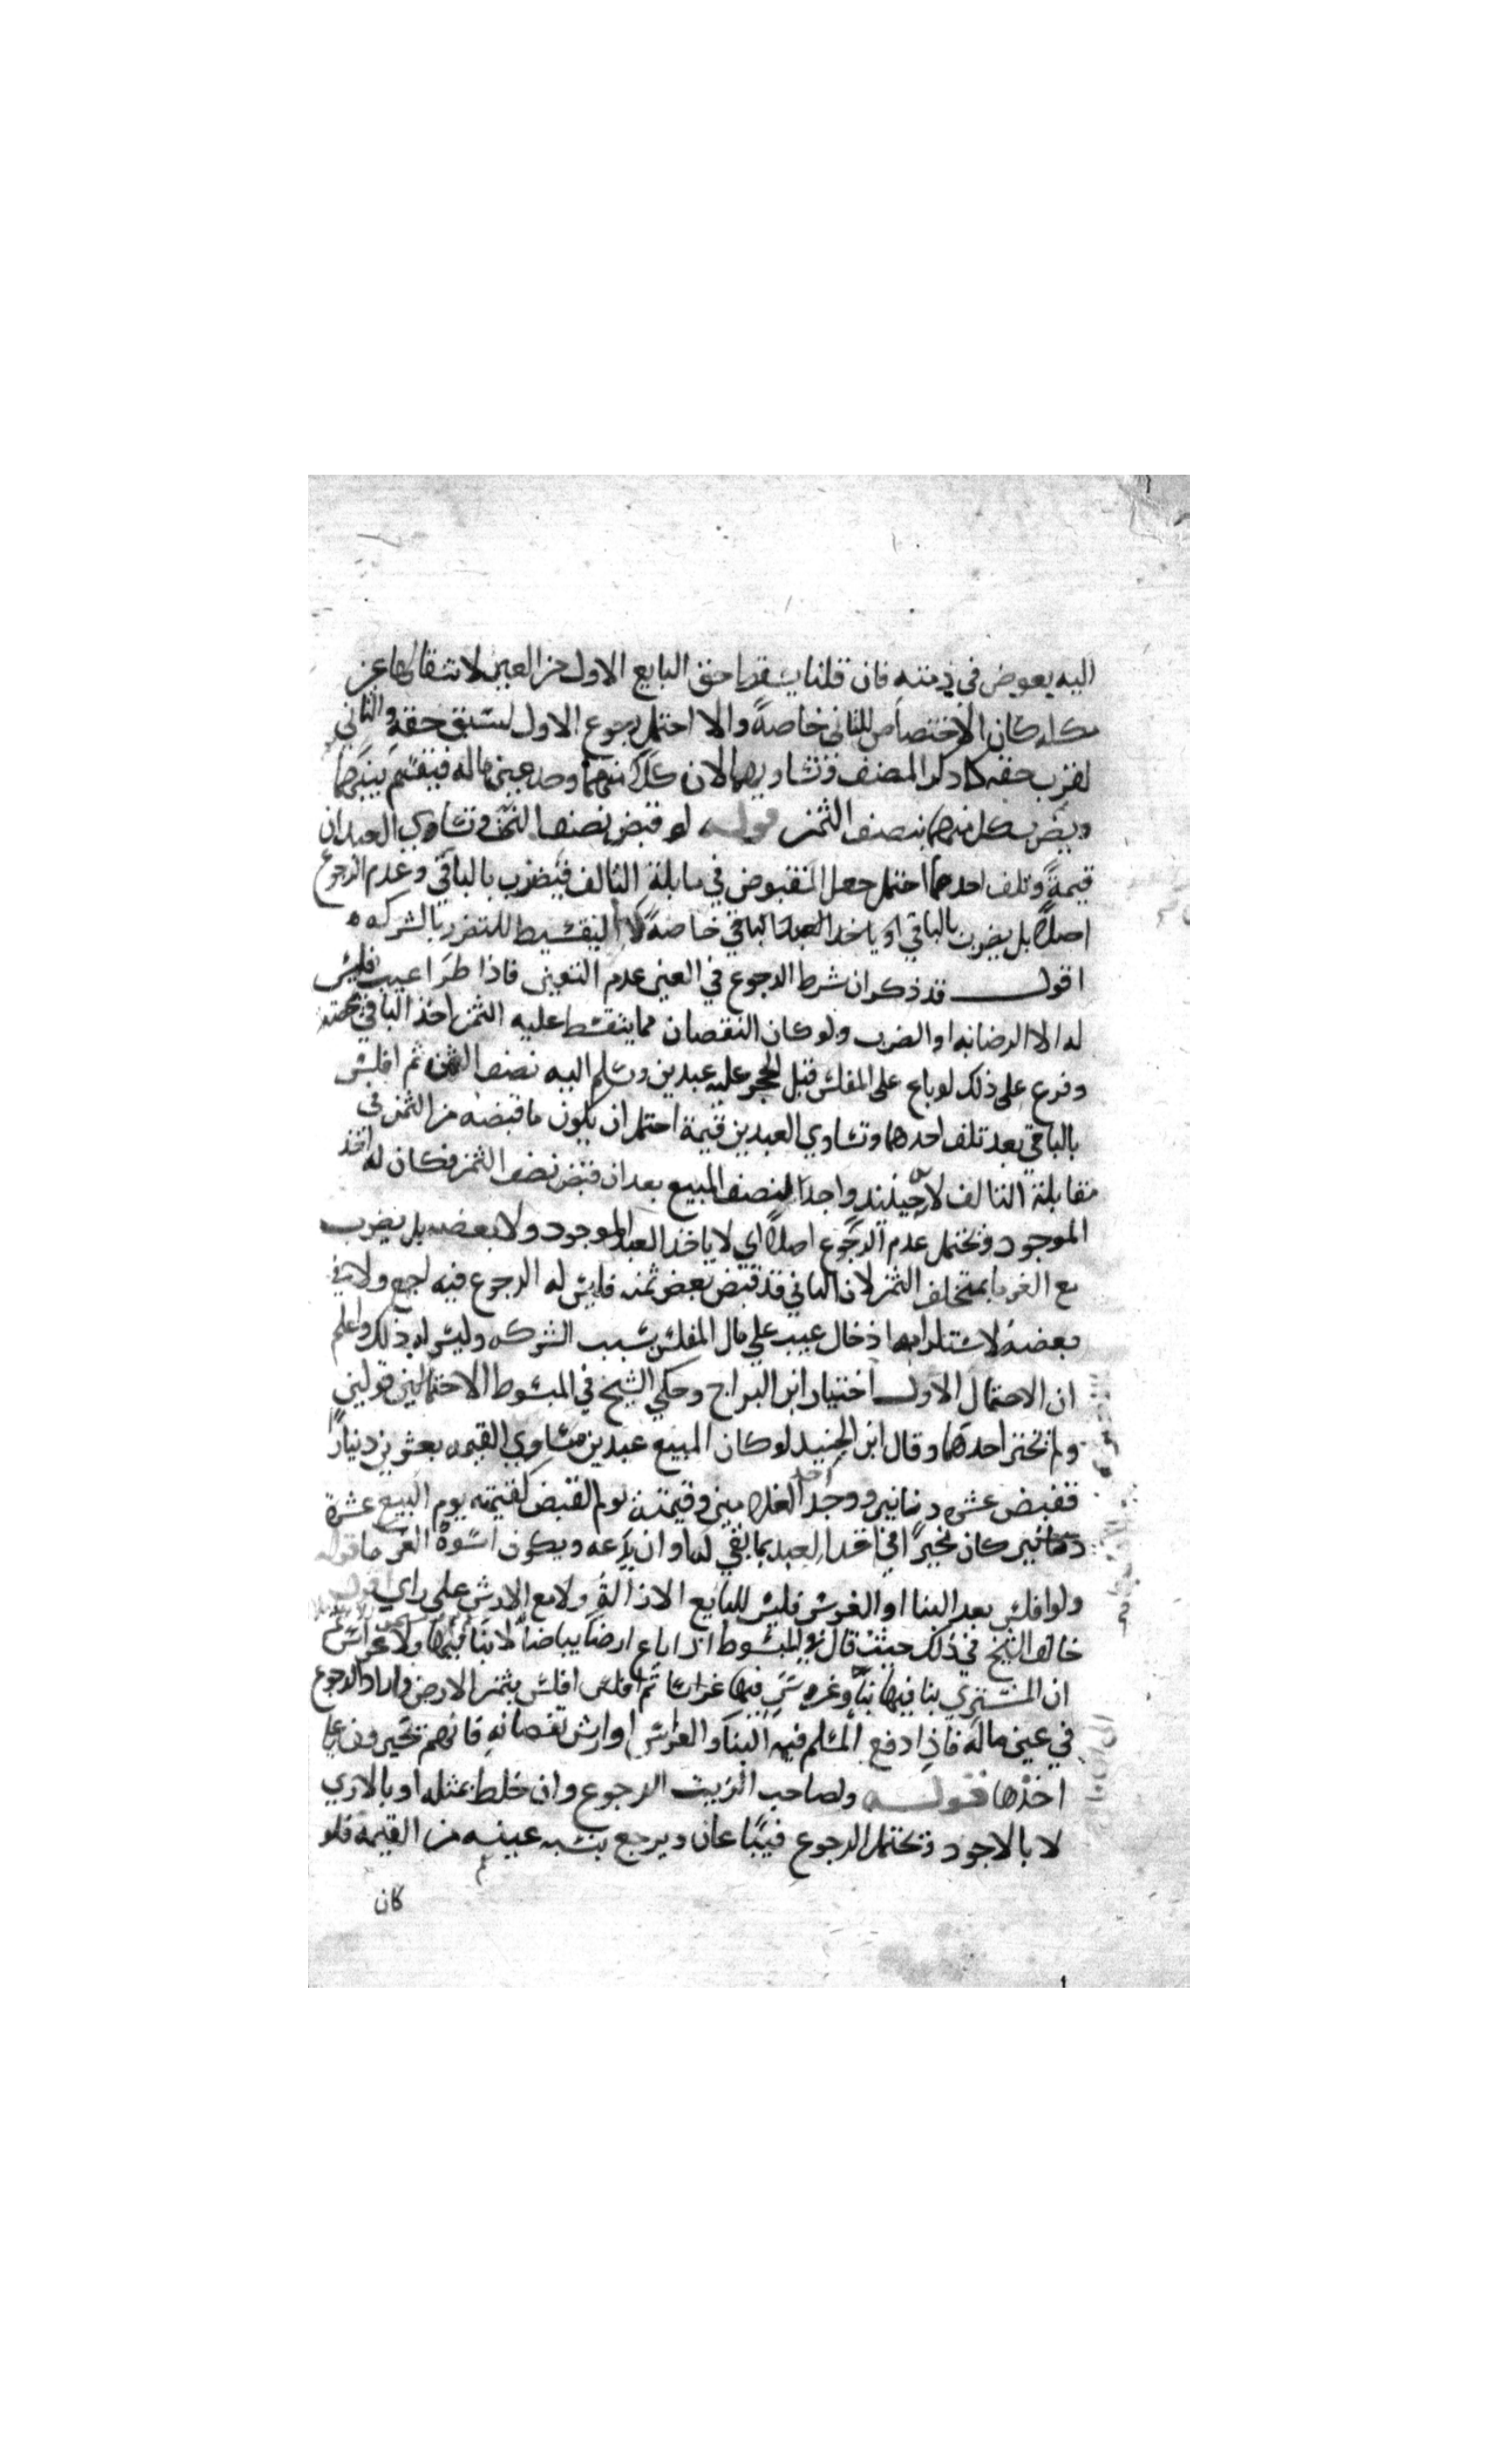 اليه بعوض في ذمته فان قلنا يسقط حق البايع الاول من العين لانتقالها عن
ملكه كان الاختصاص للثاني خاصةً والا احتمل رجوع الاول لسبق حقه والثاني
لقرب حقه كما ذكر المصنف وتساويهما لان كلا منهما وجد عين ماله فيقسم بينهما
ويضرب كل منهما بنصف الثمن قوله لو قبض نصف الثمن وتساوي العبدان
قيمةً وتلف احدهما احتمل جعل المقبوض في مقابلة التالف فيضرب بالباقي وعدم الرجوع
اصلاً بل يضرب بالباقي او ياخذ العبد الباقي خاصةً لا التقسيط للتضرر بالشركه
اقول قد ذكر ان شرط الرجوع في العين عدم التغيير فاذا طرا عيب فليس
له الا الرضا به او الضرب ولو كان النقصان مما يتقسط عليه الثمن اخذ الباقي بحصته
وفرع على ذلك لو باع على المفلس قبل الحجر عليه عبدين وسلم اليه نصف الثمن ثم افلس
بالباقي بعد تلف احدهما وتساوي العبدين قيمة احتمل ان يكون ما قبضه من الثمن في
مقابلة التالف لانه حينئذ واجد لنصف المبيع بعد ان قبض نصف الثمن فكان له اخذ
الموجود ويحتمل عدم الرجوع اصلاً اي لا ياخذ العبد الموجود ولا بعضه بل يضرب
مع الغرما بمتخلف الثمن لان الباقي قد قبض بعض ثمنه فليس له الرجوع فيه اجمع ولا في
بعضه لاستلزامه ادخال عيب على مال المفلس بسبب الشركه وليس له ذلك واعلم
ان الاحتمال الاول اختيار ابن البراج وحكي الشيخ في المبسوط الاحتمالين قولين
ولم يختر احدهما وقال ابن الجنيد لو كان المبيع عبدين متساوي القيمه بعشرين دينارًا
فقبض عشره دنانير ووجد احد الغلامين وقيمته يوم القبض كقيمته يوم البيع عشرة
دنانير كان مخيراً في اخذ العبد بما بقي له او ان يدعه ويكون اسوة الغرما قوله
ولو افلس بعد البنا او الغرس فليس للبايع الازالة ولا مع الارش على راي اقول
خالف الشيخ في ذلك حيث قال في المبسوط اذا باع ارضا بياضا لا بنا فيها ولا غراس ثم
ان المشتري بنا فيها بناً وغرس فيها غراسًا ثم افلس افلس بثمن الارض واراد الرجوع
في عين ماله فاذا دفع المسلم فيه البنا والغراس او ارش نقصانه فانهم يجبرون على
اخذها قوله ولصاحب الزيت الرجوع وان خلط بمثله او بالاردي
لا بالاجود ويحتمل الرجوع فيباعان ويرجع بنسبه عينه من القيمة فلو
كان